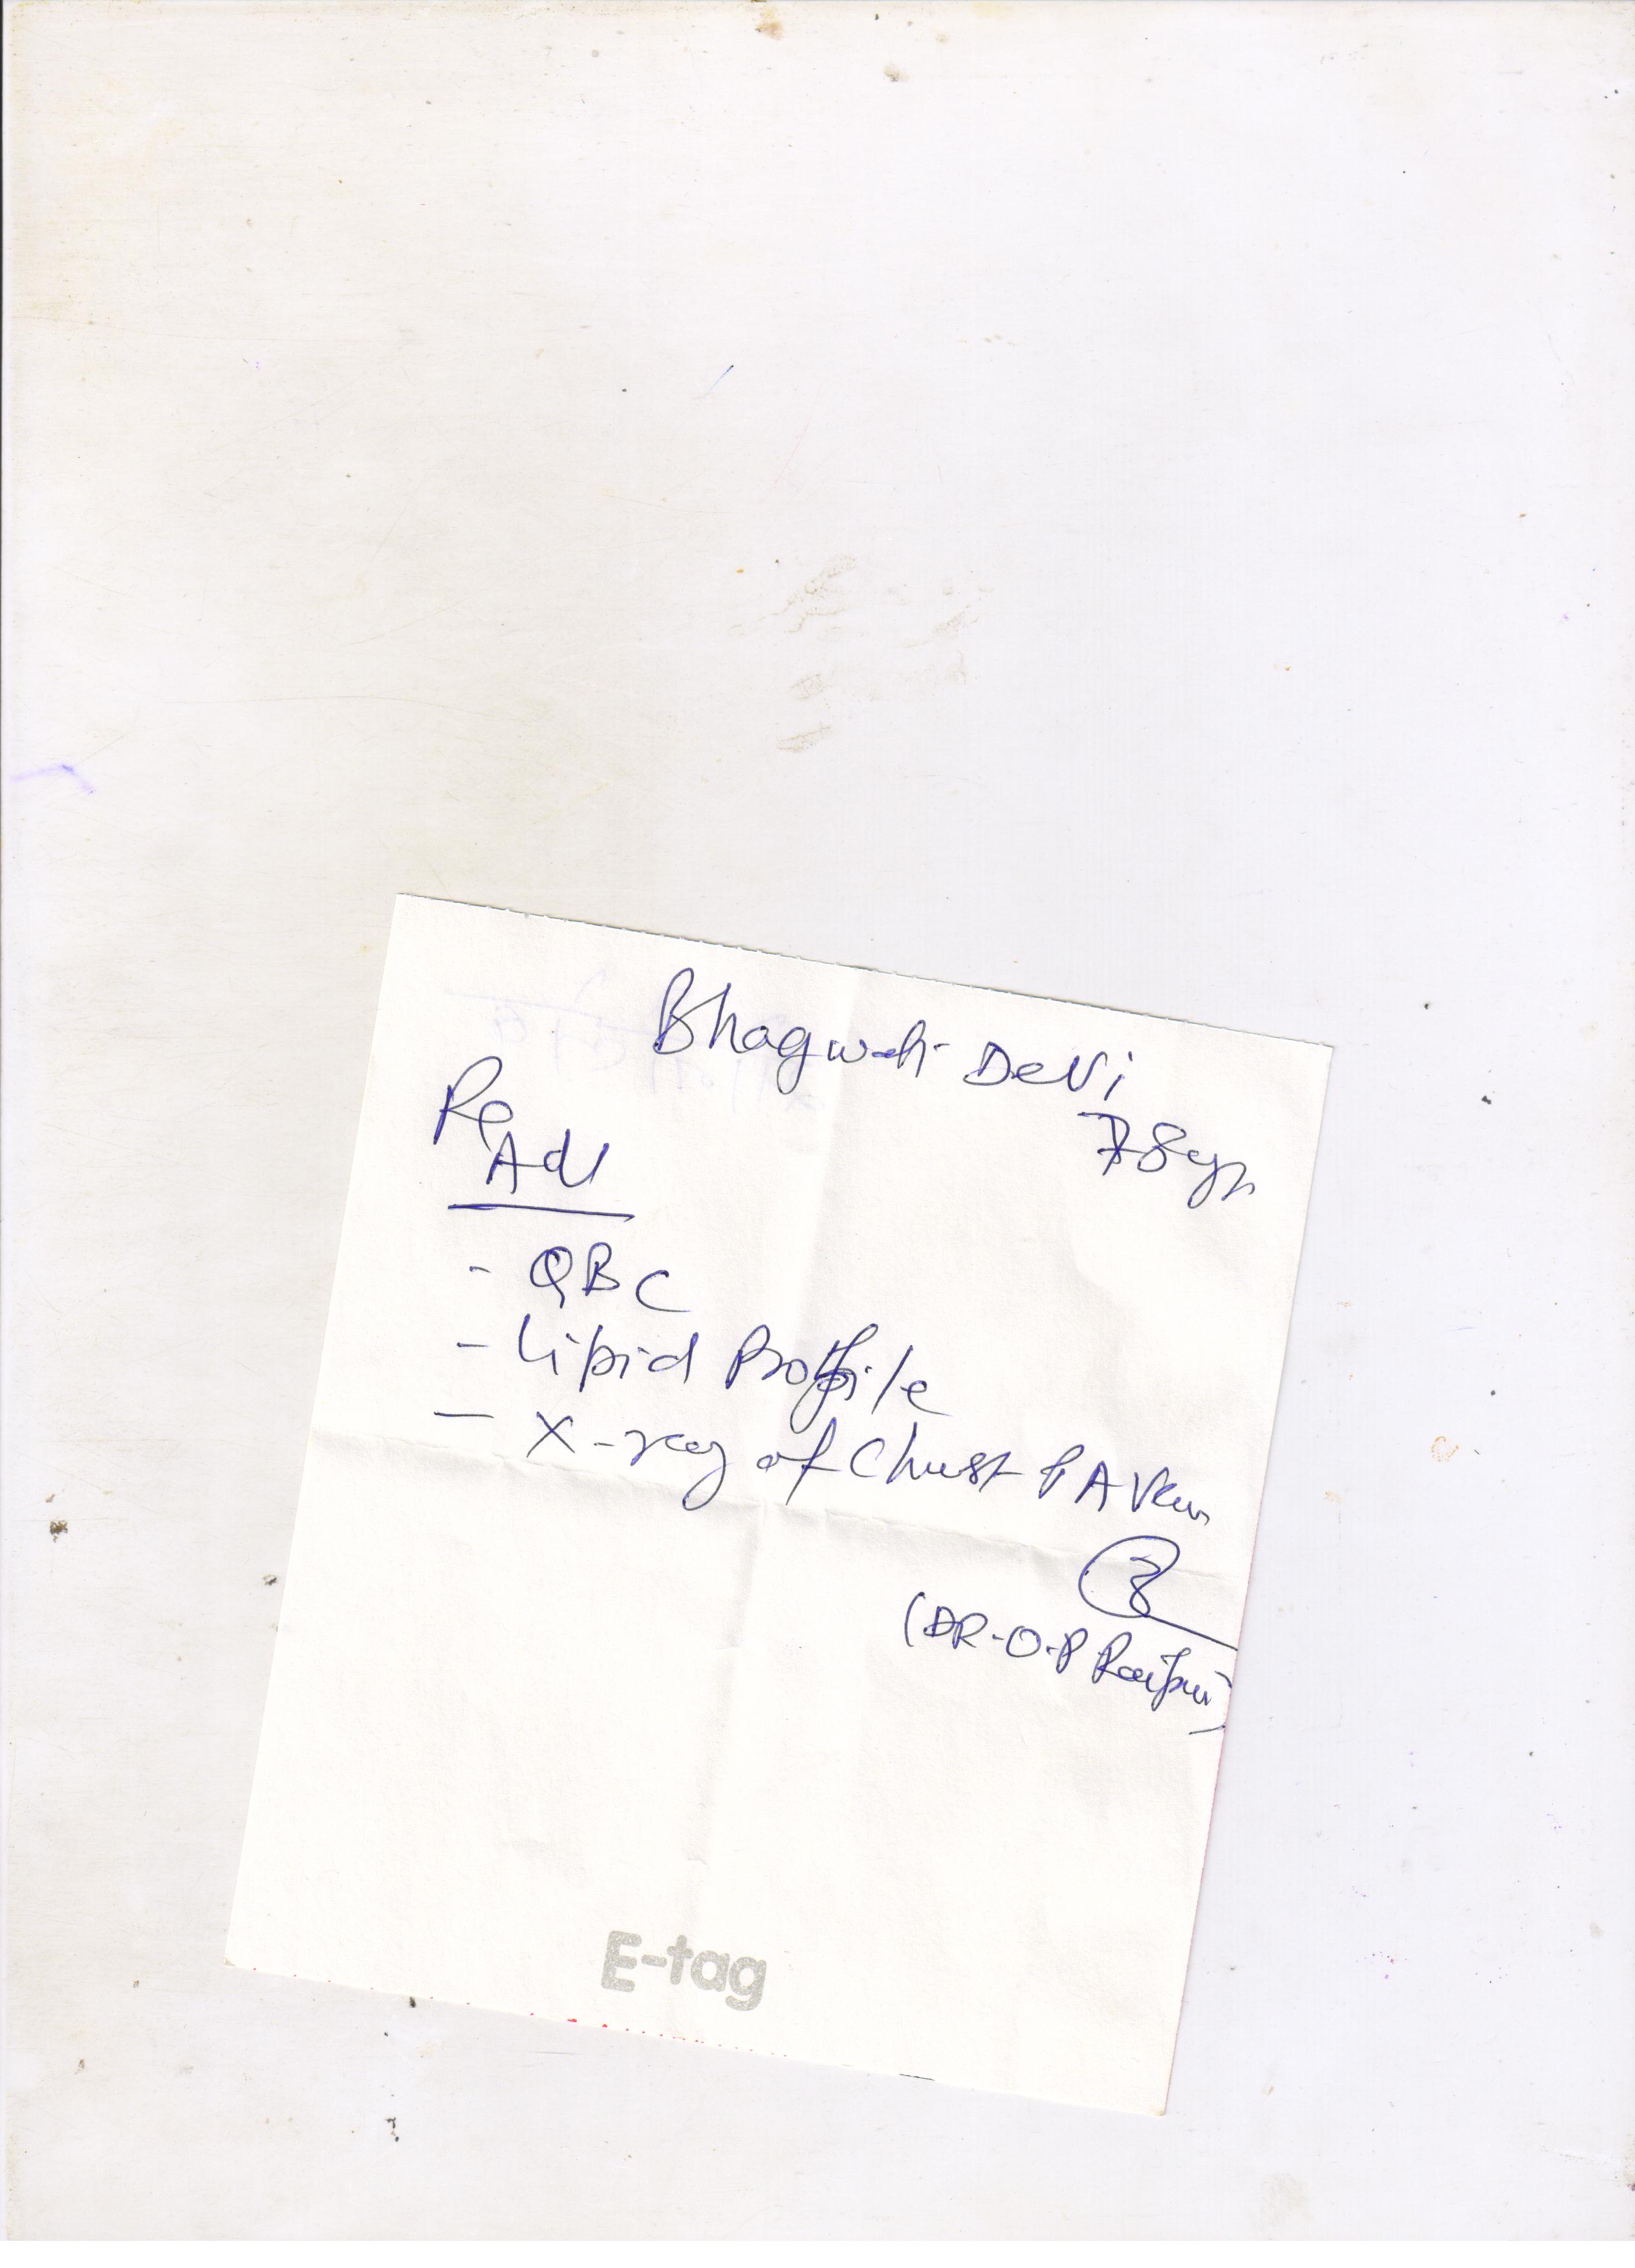 Bhagwati Devi
78 yr
Rx
Adv
- QBC
- Lipid Profile
- X-ray of Chest PA View
(DR. O.P Raipuri)
E-tag